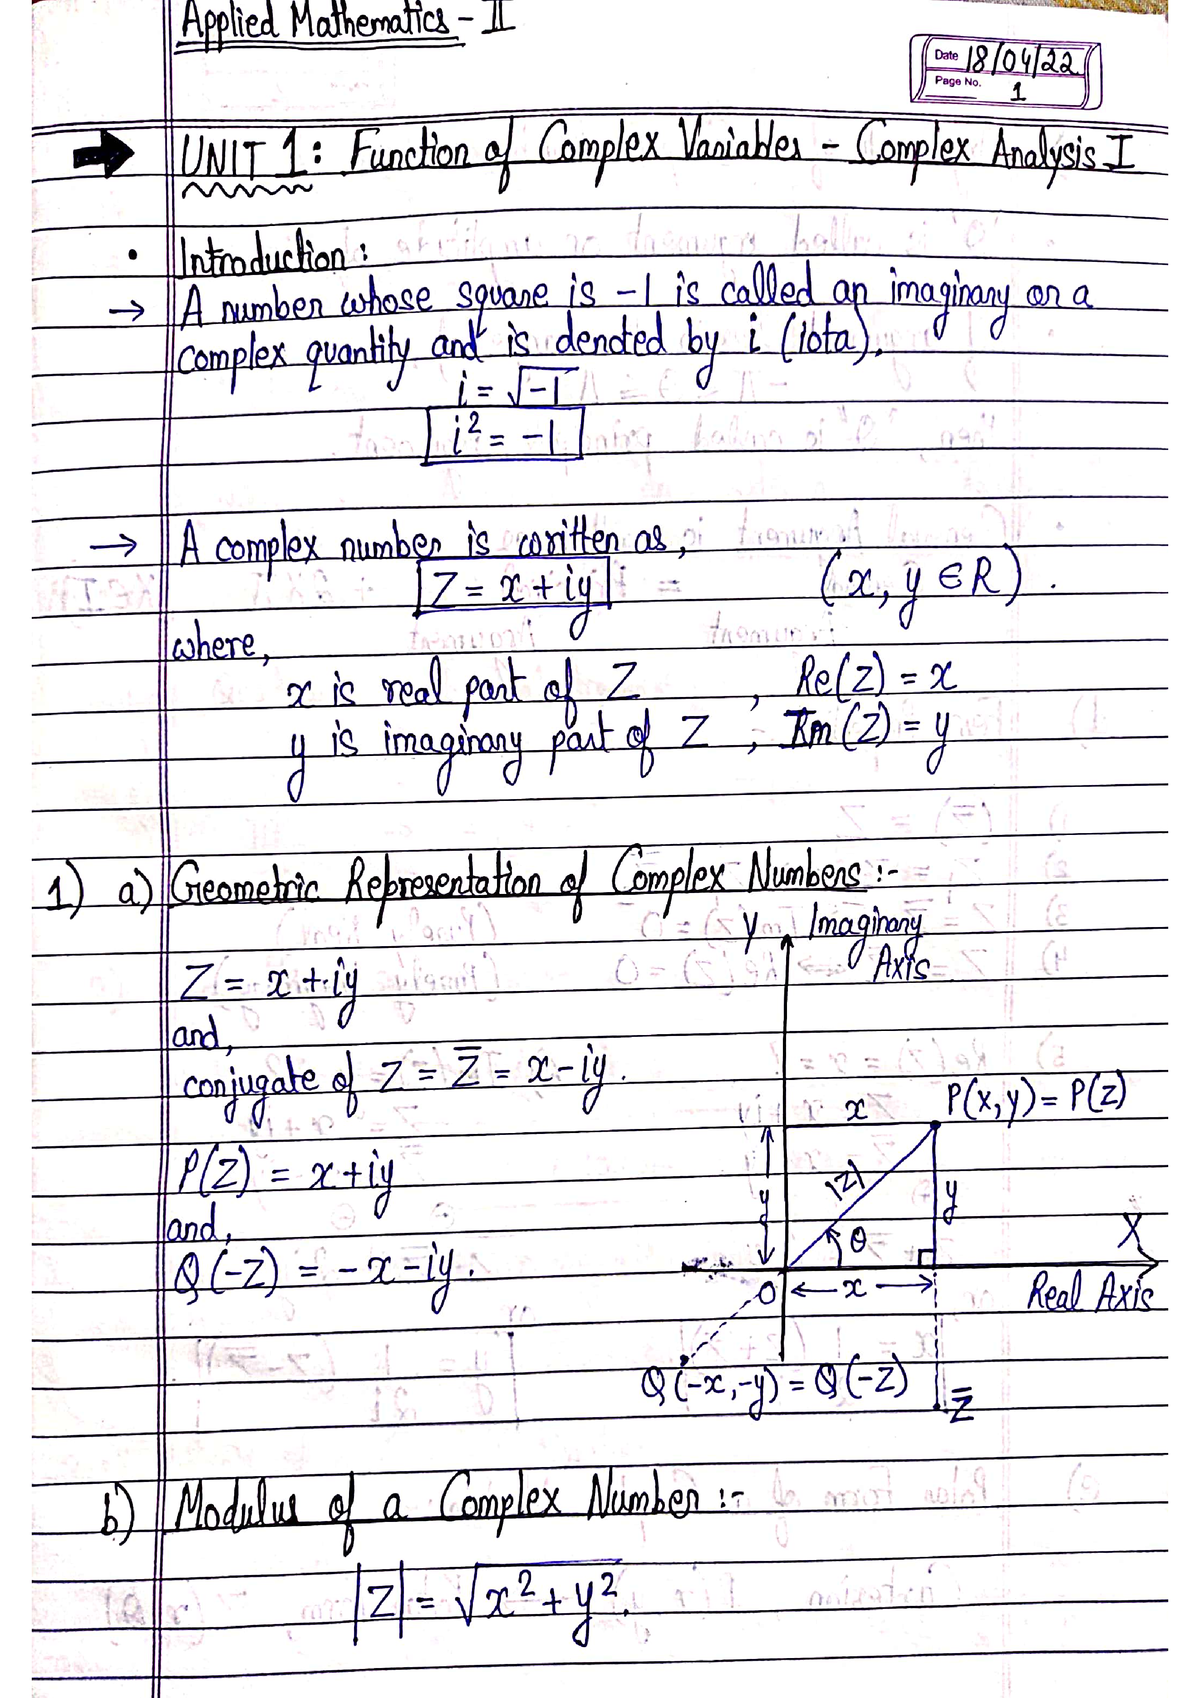 Applied Mathematics - II
Date 18/04/22
Page No. 1
UNIT 1: Function of Complex Variables - Complex Analysis I
• Introduction:
→ A number whose square is -1 is called an imaginary or a
complex quantity and is denoted by i (iota).
i = √-1
i² = -1
→ A complex number is written as,
Z = x + iy (x, y ∈ R).
where,
x is real part of Z , Re(Z) = x
y is imaginary part of Z , Im(Z) = y
1) a) Geometric Representation of Complex Numbers :-
Z = x + iy
and,
conjugate of Z = Z̅ = x - iy.
P(Z) = x + iy
and,
Q(-Z) = -x - iy.
Y Imaginary
Axis
x P(x,y) = P(Z)
|Z|
y
y
θ
X
O x
Real Axis
Q(-x,-y) = Q(-Z)
Z̅
b) Modulus of a Complex Number :-
|Z| = √x² + y².